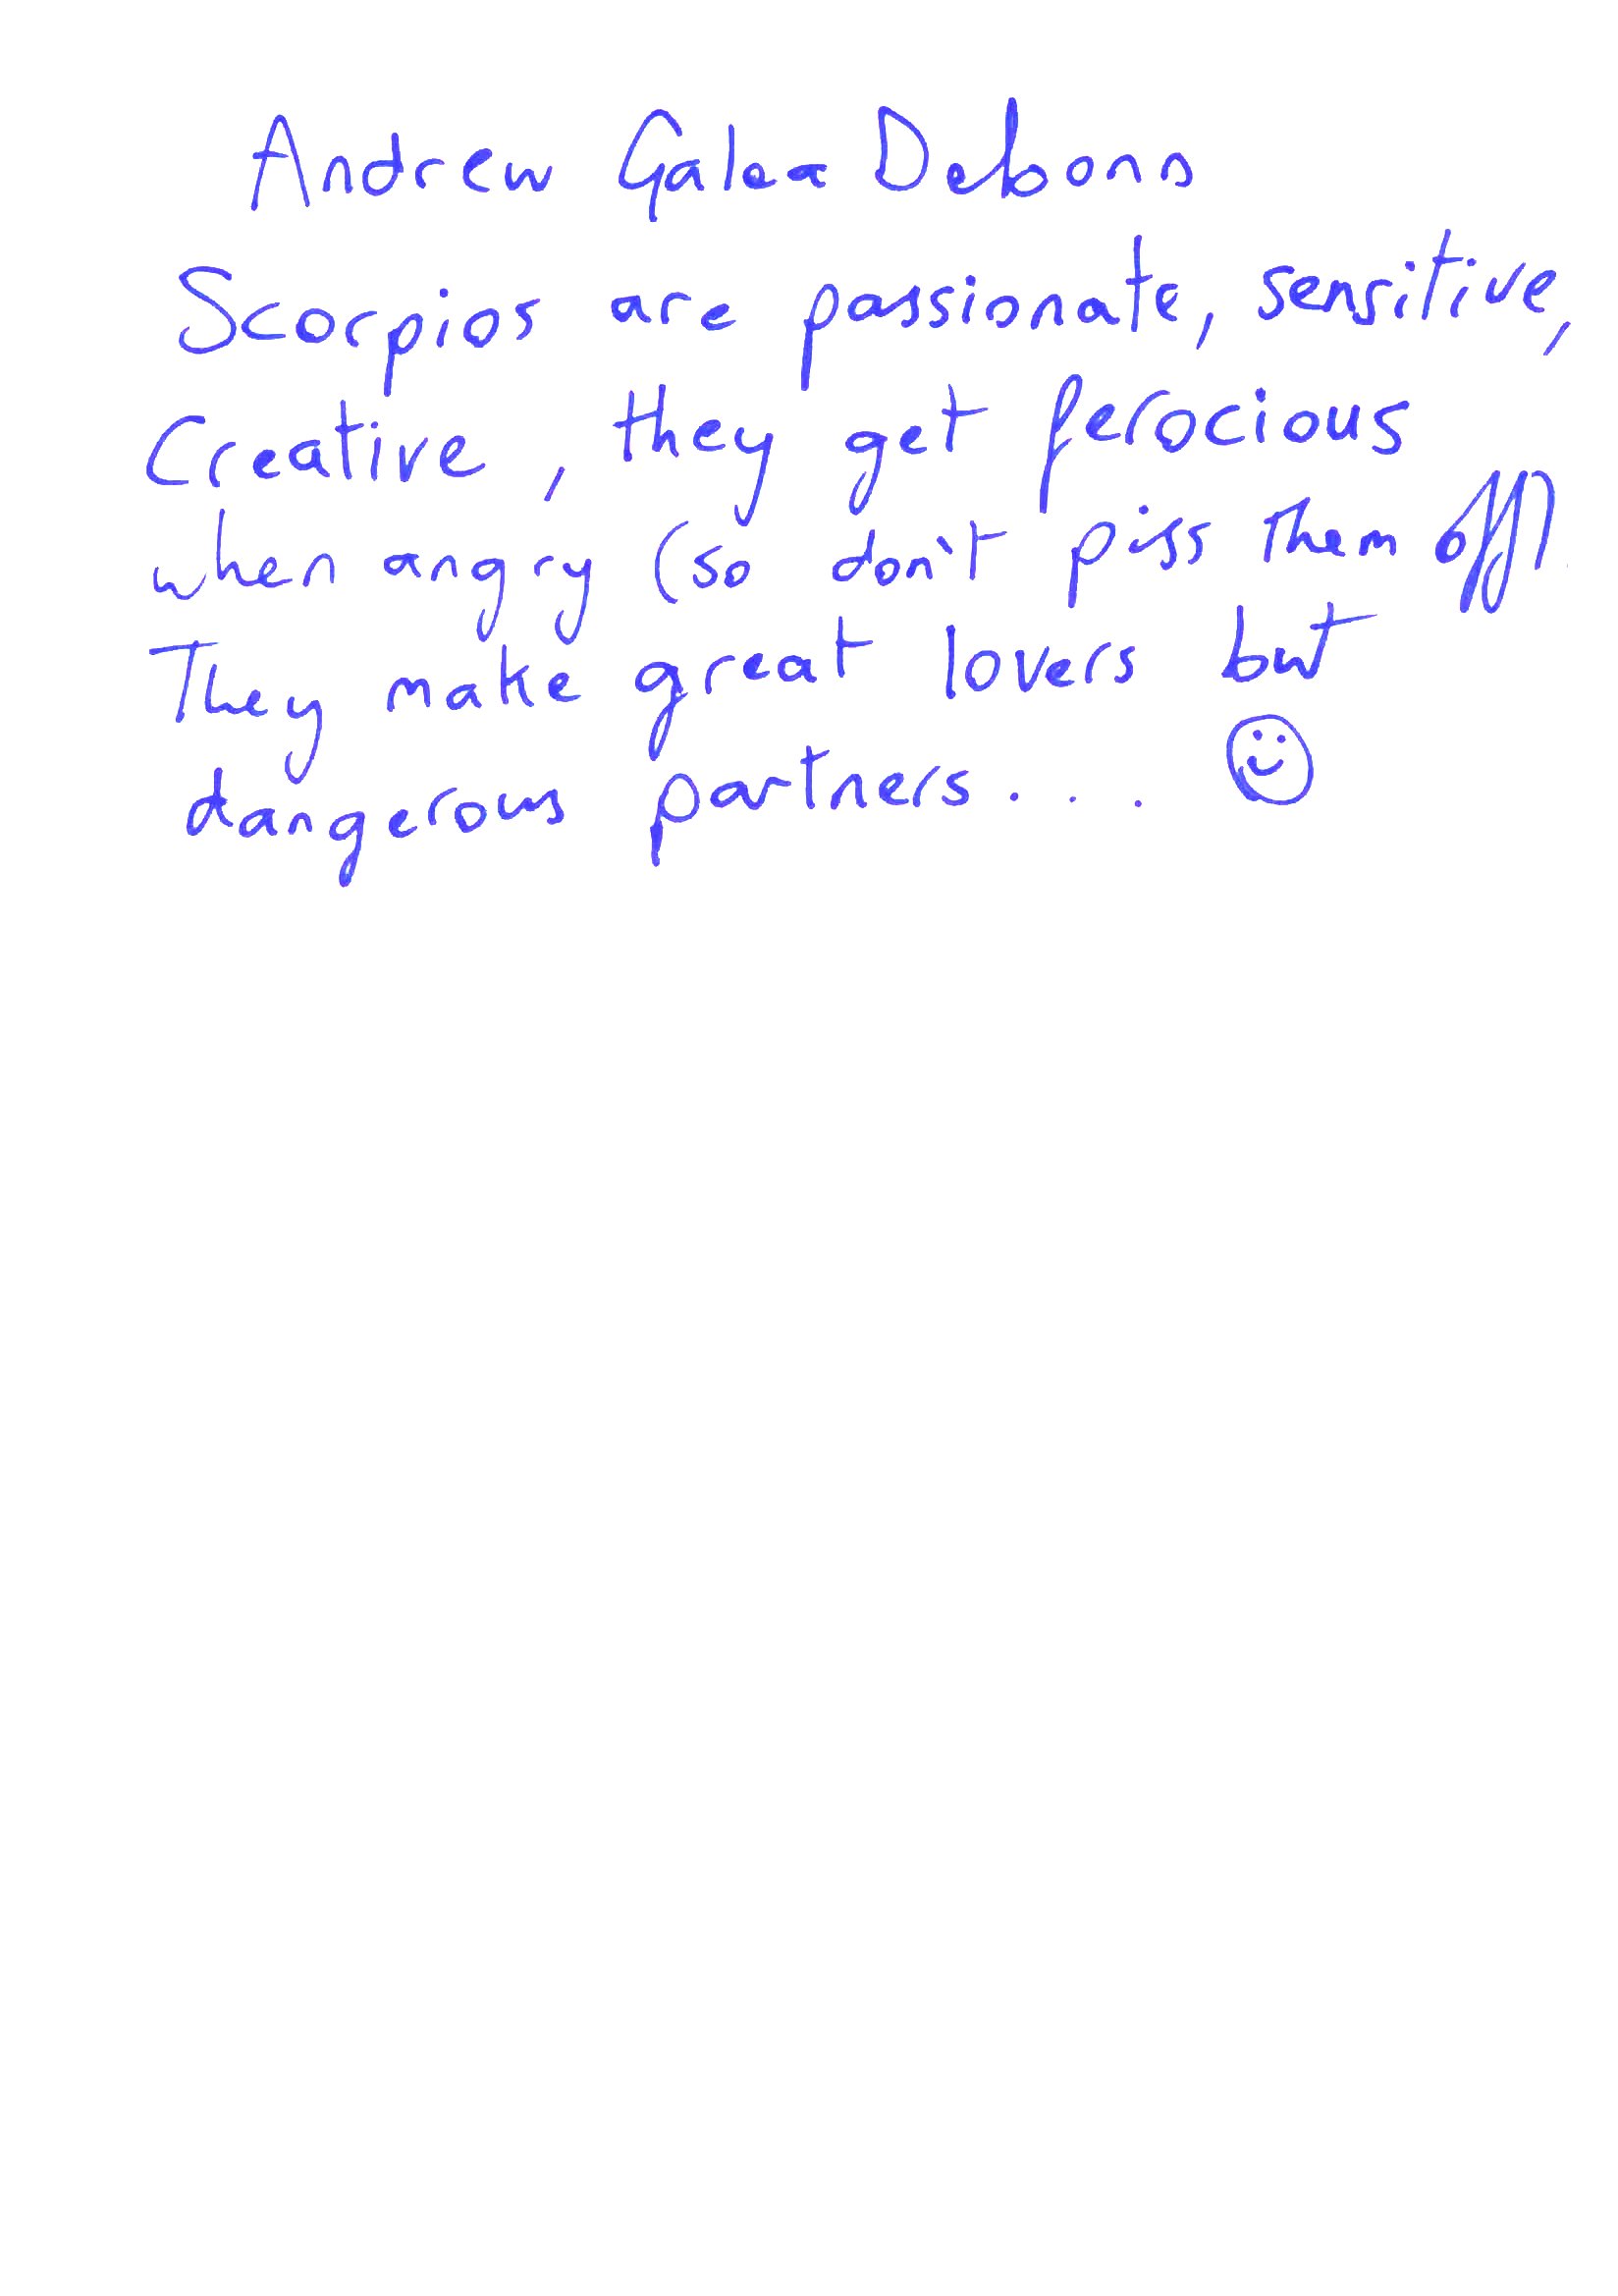 Andrew Galea Debono
Scorpios are passionate, sensitive,
Creative, they get ferocious
when angry (so don't piss them off).
They make great lovers but
dangerous partners... ☺